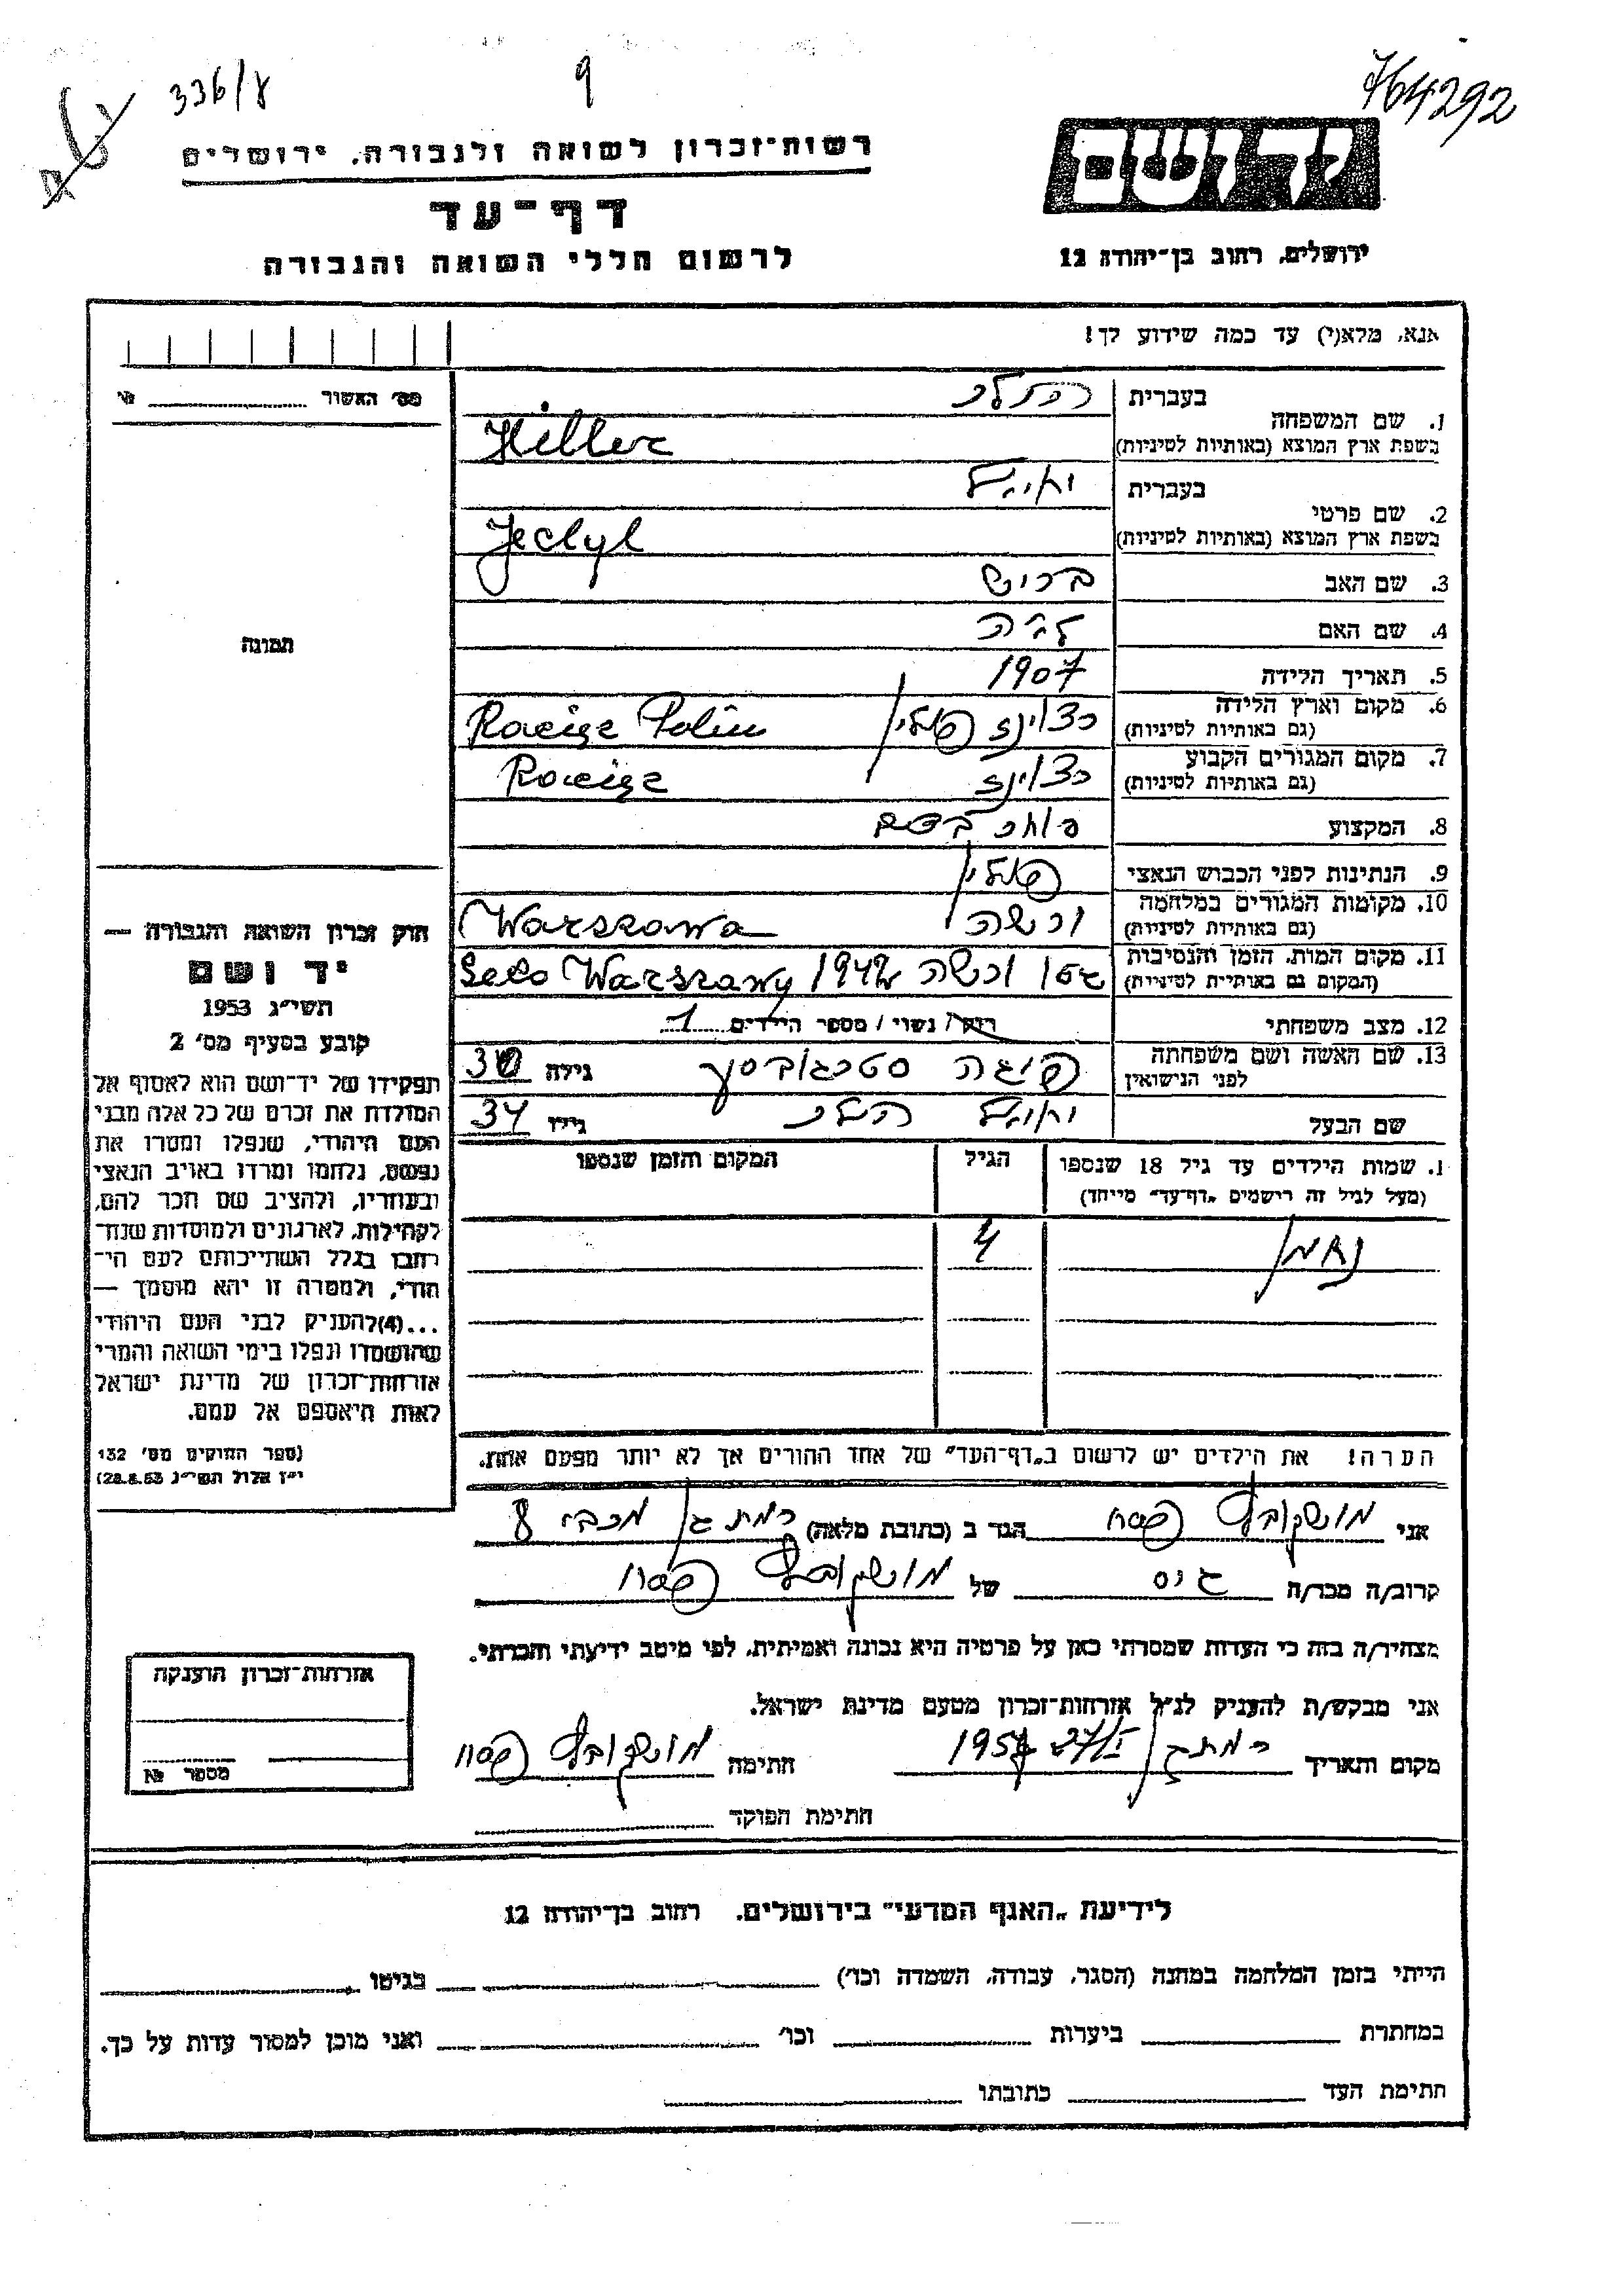 764292
9
336/8
יד ושם
רשות-זכרון לשואה ולגבורה, ירושלים
דף-עד
לרשום חללי השואה והגבורה
ירושלים, רחוב בן-יהודה 12
אנא, מלא(י) עד כמה שידוע לך!
מס' האשור № 
תמונה
1. שם המשפחה
בעברית
בשפת ארץ המוצא (באותיות לטיניות) Hiller
2. שם פרטי
בעברית
בשפת ארץ המוצא (באותיות לטיניות) Jechyl
3. שם האב בריש
4. שם האם
5. תאריך הלידה 1907
6. מקום וארץ הלידה
(גם באותיות לטיניות) רצ'ונז פולין Raciąz Polin
7. מקום המגורים הקבוע
(גם באותיות לטיניות) רצ'ונז Raciąz
8. המקצוע סוחר בדים
9. הנתינות לפני הכבוש הנאצי פולין
10. מקומות המגורים במלחמה
(גם באותיות לטיניות) ורשה Warszawa
11. מקום המות, הזמן והנסיבות
(המקום גם באותיות לטיניות) גטו ורשה 1942 Warszawy
12. מצב משפחתי רווק / נשוי / מספר הילדים 1
13. שם האשה ושם משפחתה
לפני הנישואין פיגה גילה 30
שם הבעל יחיאל הילר גילו 34
1. שמות הילדים עד גיל 18 שנספו הגיל המקום והזמן שנספו
(מעל לגיל זה רישמים „דף-עד" מייחד)
נחמן 4
הערה! את הילדים יש לרשום ב„דף-העד" של אחד ההורים אך לא יותר מפעם אחת.
חוק זכרון השואה והגבורה —
יד ושם
תשי"ג 1953
קובע בסעיף מס' 2
תפקידו של יד-ושם הוא לאסוף אל
המולדת את זכרם של כל אלה מבני
העם היהודי, שנפלו ומסרו את
נפשם, נלחמו ומרדו באויב הנאצי
ובעוזריו, ולהציב שם וזכר להם,
לקהילות, לארגונים ולמוסדות שנח-
רבו בגלל השתייכותם לעם הי-
הודי, ולמטרה זו יהא מוסמך —
...(4)להעניק לבני העם היהודי
שהושמדו ונפלו בימי השואה והמרי
אזרחות-זכרון של מדינת ישראל
לאות היאספם אל עמם.
(ספר החוקים מס' 132
י"ז אלול תשי"ג 28.8.53)
אני מושקוביץ פסח הגר ב (כתובת מלאה) רמת גן מכבי 8
קרוב/ה מכר/ה גיס של מושקוביץ פסח
מצהיר/ה בזה כי העדות שמסרתי כאן על פרטיה היא נכונה ואמיתית, לפי מיטב ידיעתי והכרתי.
אני מבקש/ת להעניק לנ"ל אזרחות-זכרון מטעם מדינת ישראל.
מקום ותאריך רמת גן 27/I 1957 חתימה מושקוביץ פסח
חתימת הפוקד
אזרחות-זכרון הוענקה
מספר №
לידיעת „האגף המדעי" בירושלים, רחוב בן-יהודה 12
הייתי בזמן המלחמה במחנה (הסגר, עבודה, השמדה וכו') בגיטו
במחתרת ביערות וכו' ואני מוכן למסור עדות על כך.
חתימת העד כתובתו